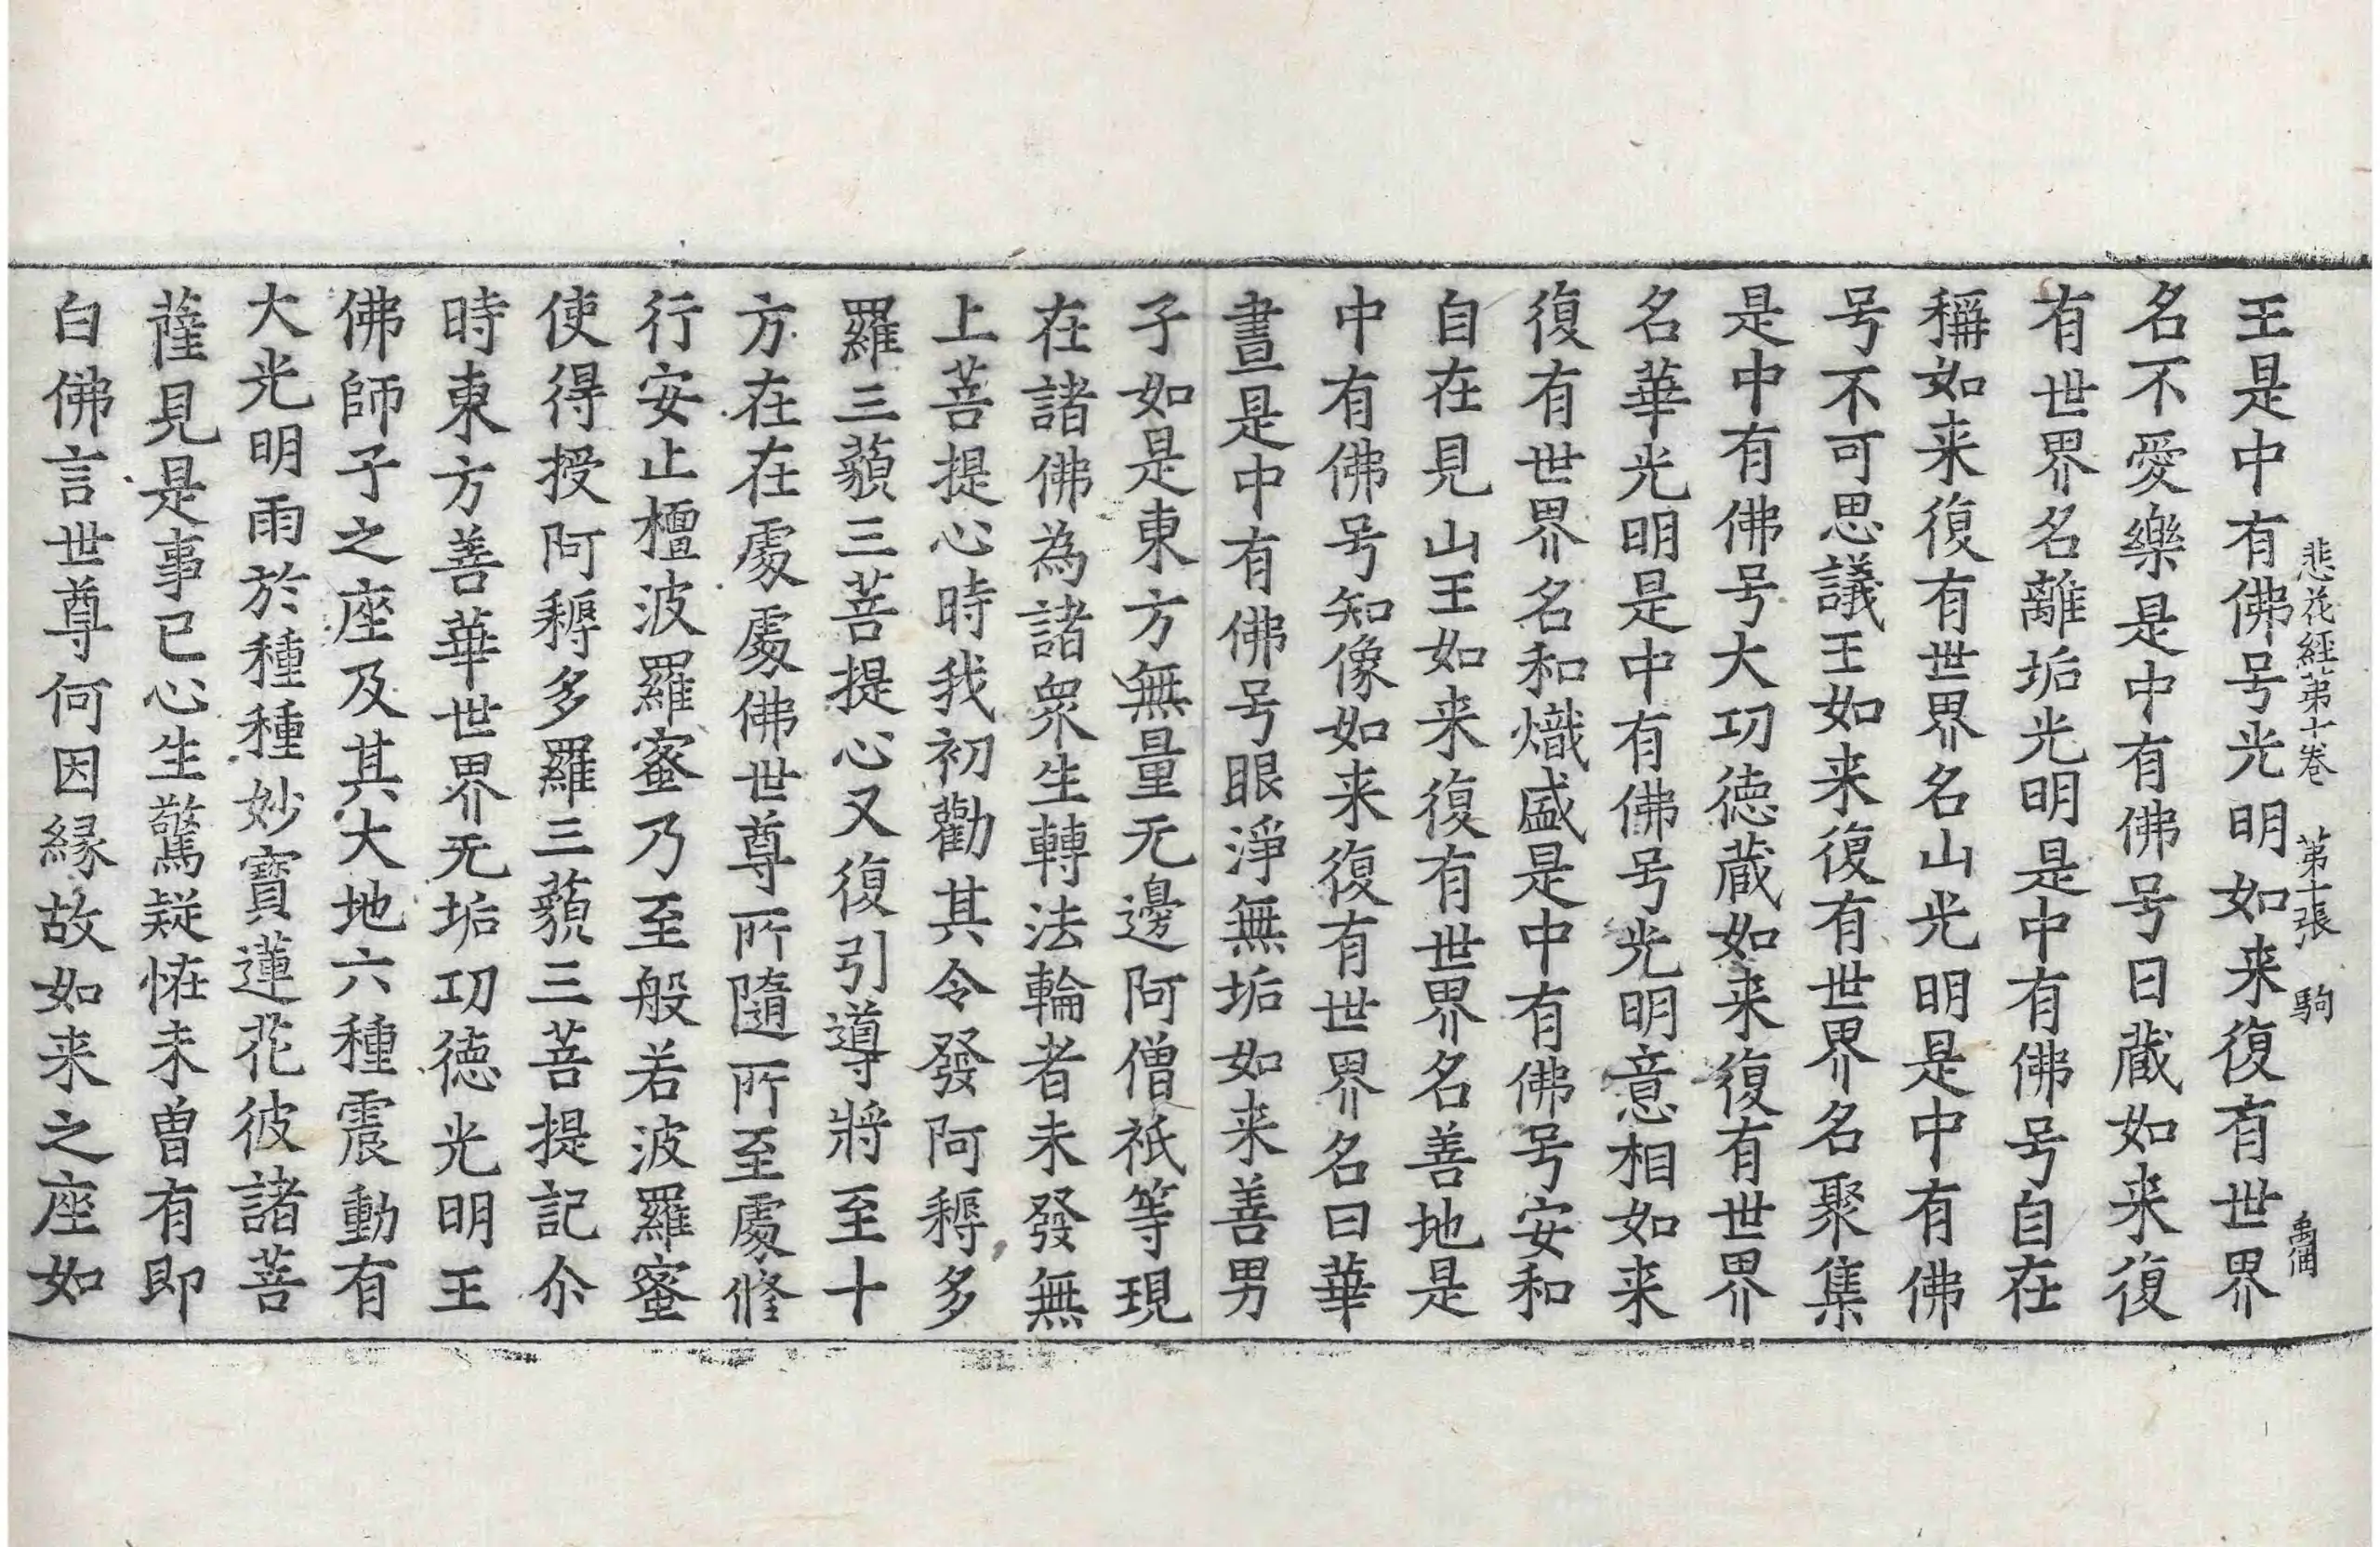 悲花經第十卷　第十張　駒
王是中有佛号光明如来復有世界
名不愛樂是中有佛号日蔵如来復
有世界名離垢光明是中有佛号自在
稱如来復有世界名山光明是中有佛
号不可思議王如来復有世界名聚集
是中有佛号大功徳蔵如来復有世界
名華光明是中有佛号光明意相如来
復有世界名和熾盛是中有佛号安和
自在見山王如来復有世界名善地是
中有佛号知像如来復有世界名曰華
晝是中有佛号眼淨無垢如来善男
子如是東方無量无邊阿僧祇等現
在諸佛為諸衆生轉法輪者未發無
上菩提心時我初勸其令發阿耨多
羅三藐三菩提心又復引導將至十
方在在處處佛世尊所隨所至處修
行安止檀波羅蜜乃至般若波羅蜜
使得授阿耨多羅三藐三菩提記尒
時東方善華世界无垢功徳光明王
佛師子之座及其大地六種震動有
大光明雨於種種妙寶蓮花彼諸菩
薩見是事已心生驚疑恠未曽有即
白佛言世尊何因縁故如来之座如